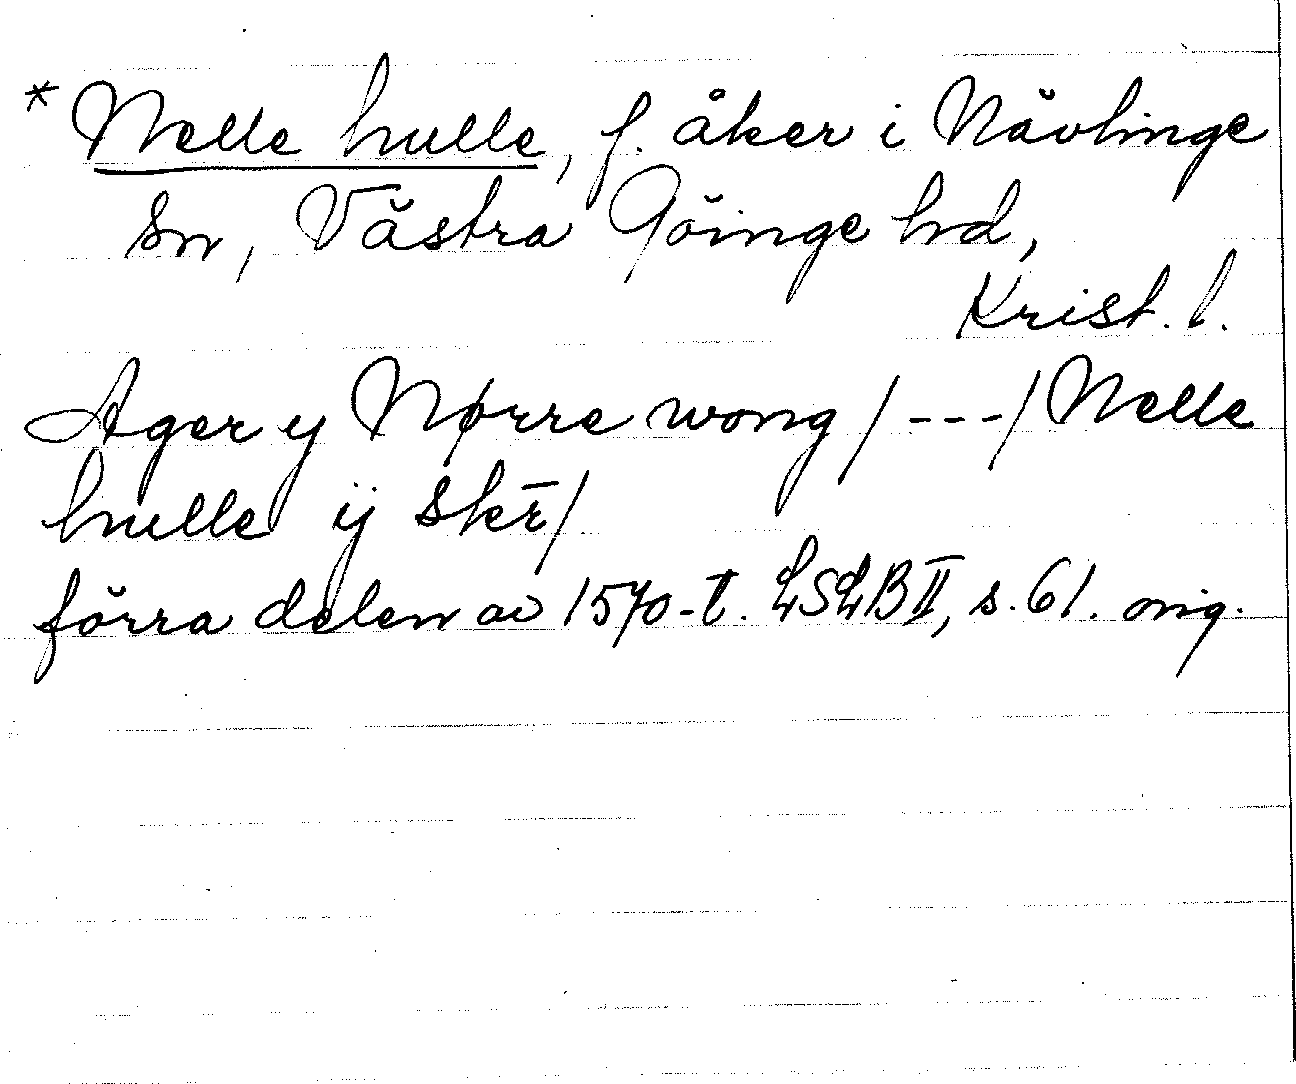 * Nelle hulle, f. åker i Nävlinge
sn, Västra Göinge hd,
Krist. l.
Ager y Nørre wong /---/ Nelle
hulle ÿ skē/
förra delen av 1570-t. LSLB II, s. 61. orig.